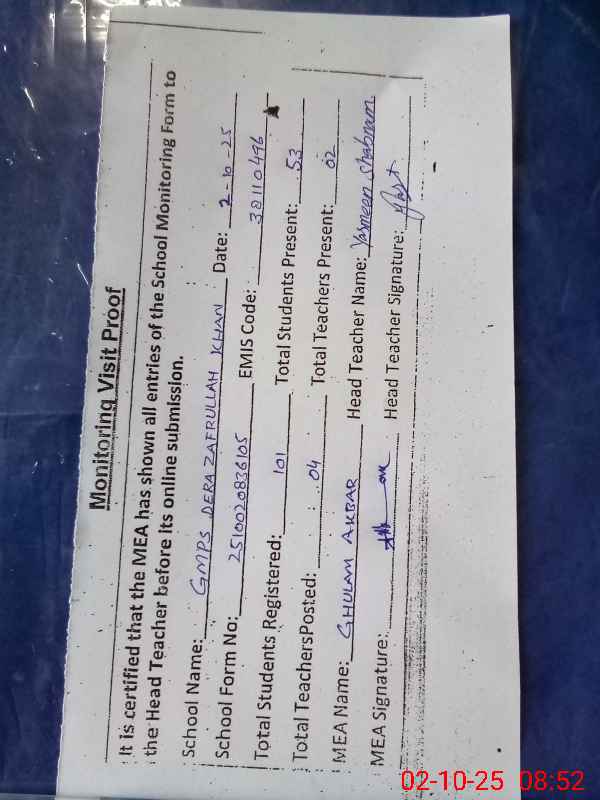 Monitoring Visit Proof
It is certified that the MEA has shown all entries of the School Monitoring Form to
the Head Teacher before its online submission.
School Name: GMPS DERA ZAFRULLAH KHAN Date: 2-10-25
School Form No: 2510020836105 EMIS Code: 38110496
Total Students Registered: 101 Total Students Present: 53
Total TeachersPosted: 04 Total Teachers Present: 02
MEA Name: GHULAM AKBAR Head Teacher Name: Yasmeen Shabnum
MEA Signature: Head Teacher Signature:
02-10-25 08:52